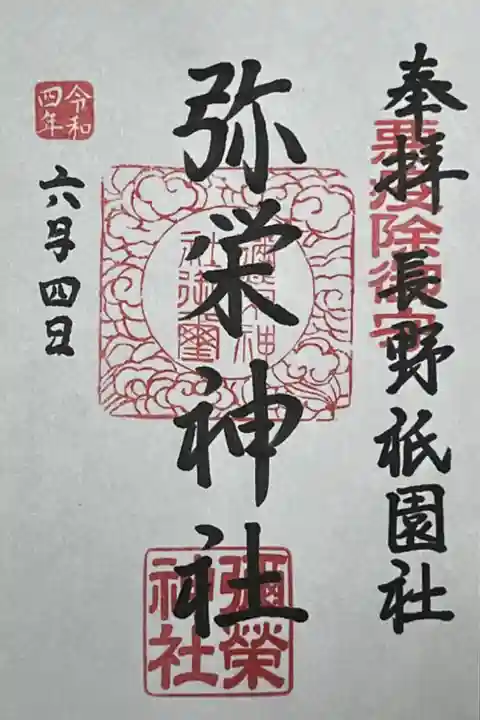 奉拝 長野祇園社
悪疫除御守
弥栄神社
彌榮神社御璽
彌榮
神社
令和
四年
六月四日